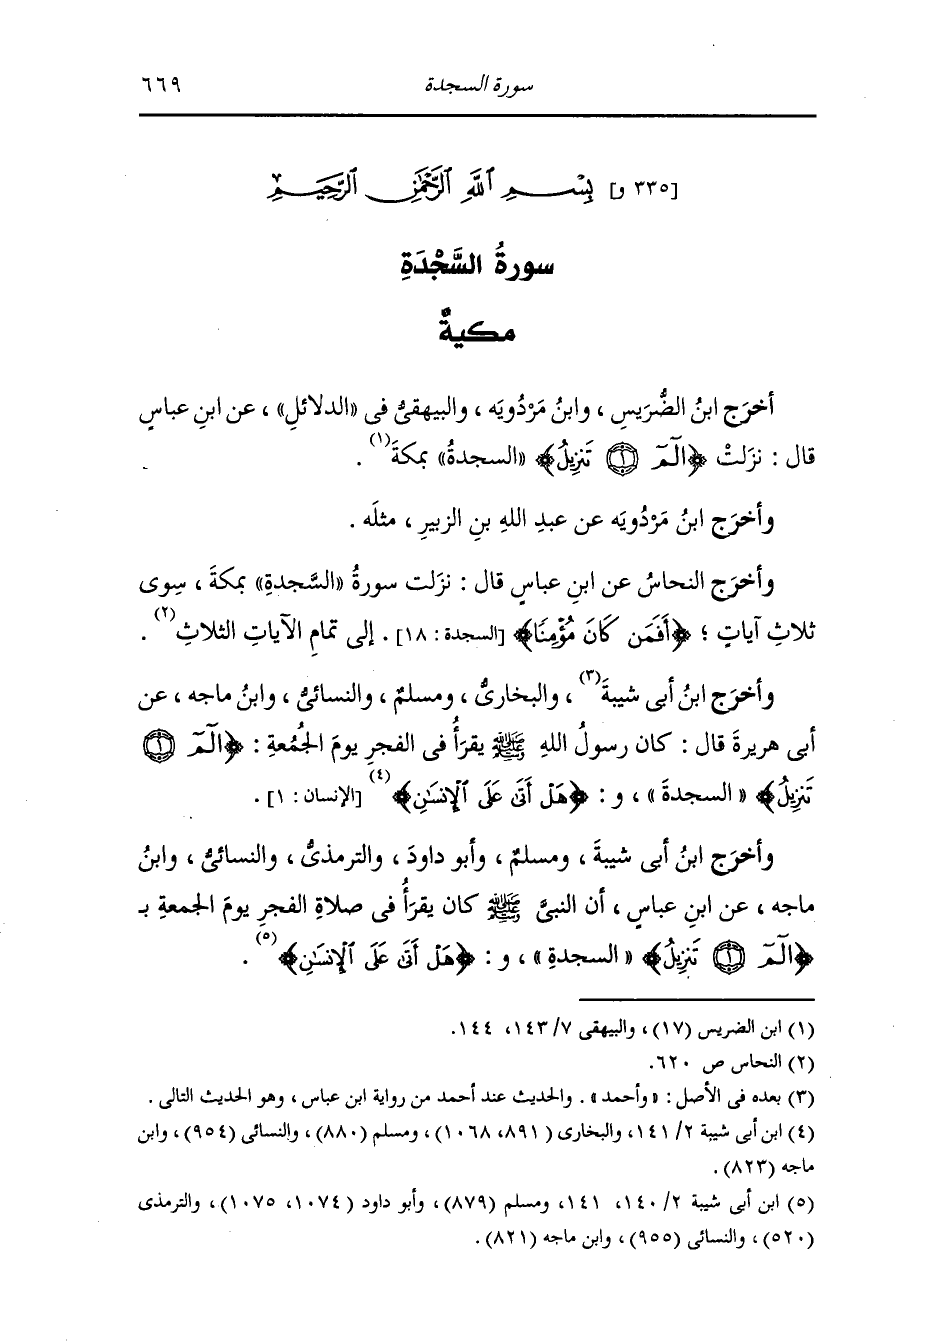 سورة السجدة ٦٦٩
[٣٣٥ و] بِسْمِ ٱللَّهِ ٱلرَّحْمَٰنِ ٱلرَّحِيمِ
سورةُ السَّجْدَةِ
مكيةٌ
أخرَج ابنُ الضُّرَيسِ ، وابنُ مَرْدُويَه ، والبيهقىُّ فى «الدلائلِ» ، عن ابنِ عباسٍ
قال : نزَلتْ ﴿الٓمٓ ۝١ تَنزِيلُ﴾ «السجدةُ» بمكةَ(١) .
وأخرَج ابنُ مَرْدُويَه عن عبدِ اللهِ بنِ الزبيرِ ، مثلَه .
وأخرَج النحاسُ عن ابنِ عباسٍ قال : نزَلت سورةُ «السَّجدةِ» بمكةَ ، سِوى
ثلاثِ آياتٍ ؛ ﴿أَفَمَن كَانَ مُؤْمِنًا﴾ [السجدة : ١٨] . إلى تمامِ الآياتِ الثلاثِ(٢) .
وأخرَج ابنُ أبى شيبةَ(٣) ، والبخارىُّ ، ومسلمٌ ، والنسائىُّ ، وابنُ ماجه ، عن
أبى هريرةَ قال : كان رسولُ اللهِ ﷺ يقرَأُ فى الفجرِ يومَ الجُمُعةِ : ﴿الٓمٓ ۝١
تَنزِيلُ﴾ «السجدةَ» ، و : ﴿هَلْ أَتَىٰ عَلَى ٱلْإِنسَٰنِ﴾(٤) [الإنسان : ١] .
وأخرَج ابنُ أبى شيبةَ ، ومسلمٌ ، وأبو داودَ ، والترمذىُّ ، والنسائىُّ ، وابنُ
ماجه ، عن ابنِ عباسٍ ، أن النبىَّ ﷺ كان يقرَأُ فى صلاةِ الفجرِ يومَ الجمعةِ بـ
﴿الٓمٓ ۝١ تَنزِيلُ﴾ «السجدةِ» ، و : ﴿هَلْ أَتَىٰ عَلَى ٱلْإِنسَٰنِ﴾(٥) .
(١) ابن الضريس (١٧) ، والبيهقى ٧/ ١٤٣، ١٤٤.
(٢) النحاس ص ٦٢٠.
(٣) بعده فى الأصل : «وأحمد» . والحديث عند أحمد من رواية ابن عباس ، وهو الحديث التالى .
(٤) ابن أبى شيبة ٢/ ١٤١، والبخارى (٨٩١، ١٠٦٨) ، ومسلم (٨٨٠) ، والنسائى (٩٥٤) ، وابن
ماجه (٨٢٣) .
(٥) ابن أبى شيبة ٢/ ١٤٠، ١٤١، ومسلم (٨٧٩) ، وأبو داود (١٠٧٤، ١٠٧٥) ، والترمذى
(٥٢٠) ، والنسائى (٩٥٥) ، وابن ماجه (٨٢١) .